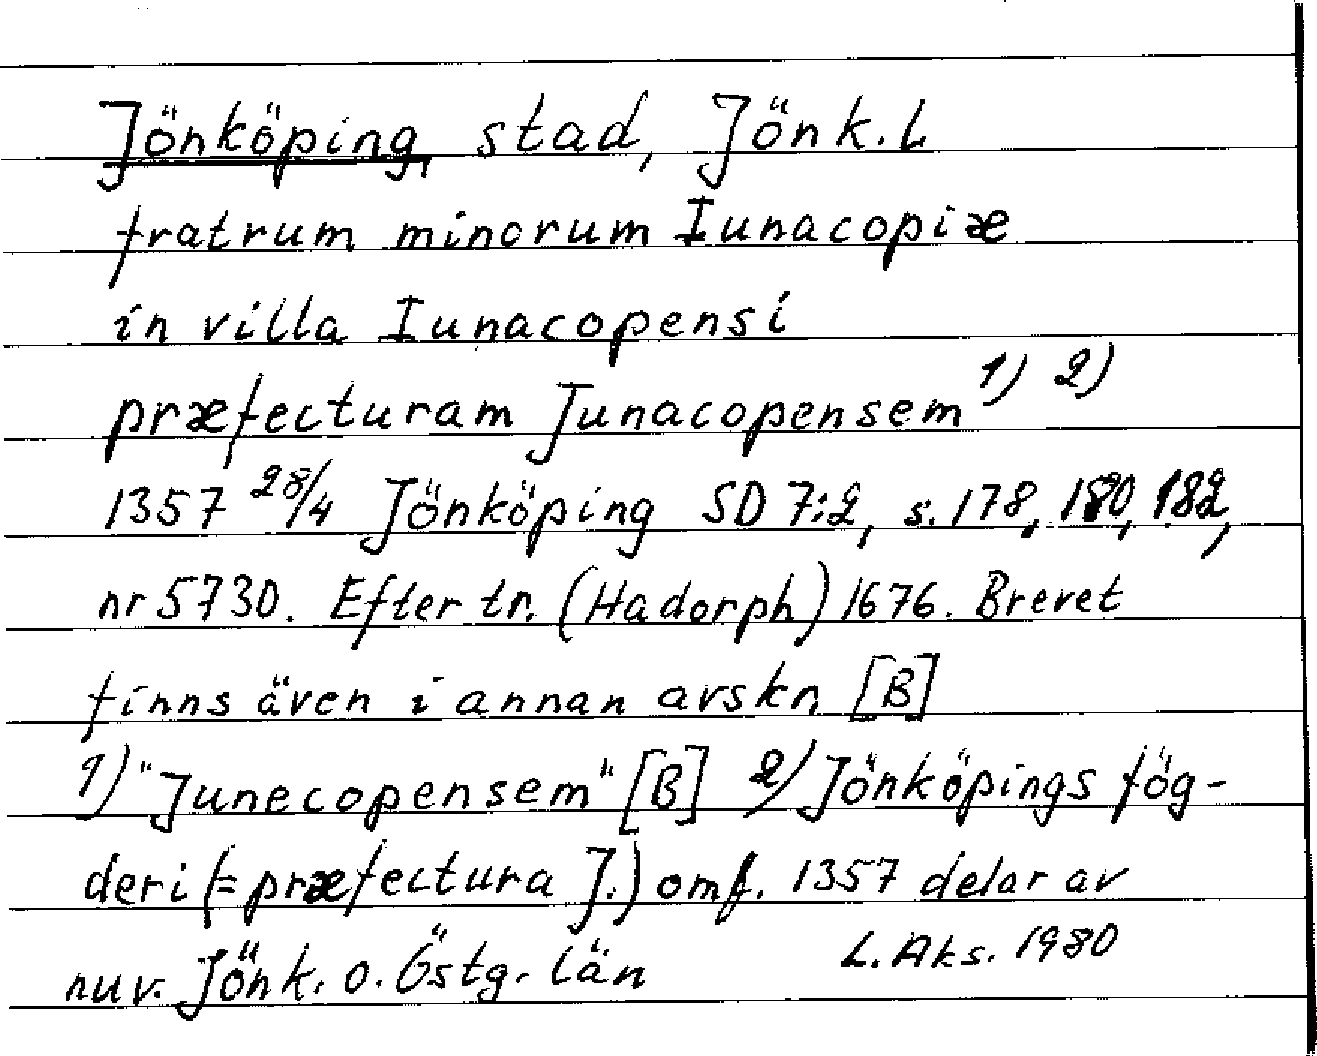 Jönköping, stad, Jönk. L
fratrum minorum Iunacopiæ
in villa Iunacopensi
præfecturam Junacopensem 1) 2)
1357 28/4 Jönköping SD 7:2, s. 178, 180, 182,
nr 5730. Efter tr. (Hadorph) 1676. Brevet
finns även i annan avskr. [B]
1) "Junecopensem" [B] 2) Jönköpings fög-
deri (= præfectura J.) omf. 1357 delar av
nuv. Jönk. o. Östg. län L. Aks. 1980